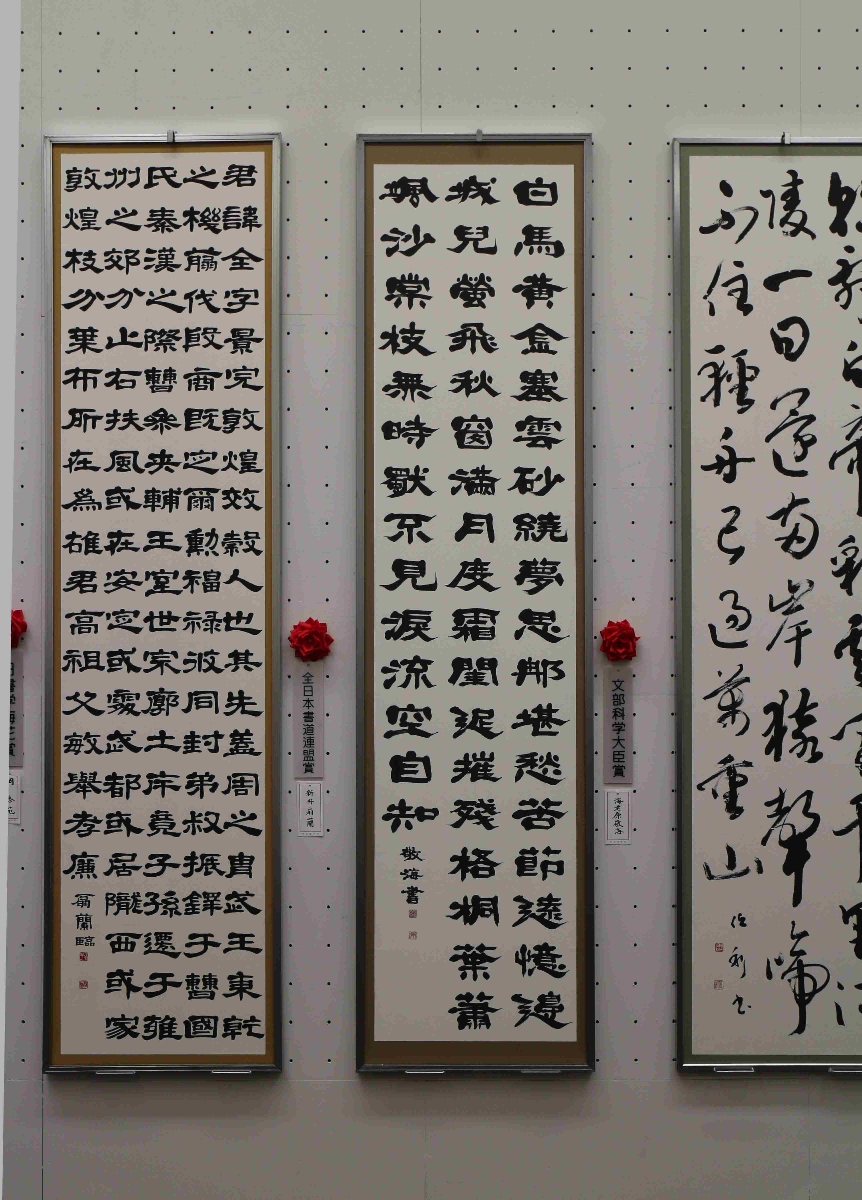 朝辭白帝彩雲間千里江
陵一日還兩岸猿聲啼
不住輕舟已過萬重山
文部科学大臣賞
海老原敬海
白馬黄金塞雲砂繞夢思那堪愁苦節遠憶邊
城兒螢飛秋窗滿月度霜閨遲摧殘梧桐葉蕭
颯沙棠枝無時獨不見淚流空自知
敬海書
全日本書道連盟賞
君諱全字景完敦煌效穀人也其先蓋周之胄武王秉乾
之機翦伐殷商既定爾勳福祿攸同封弟叔振鐸于曹國
氏秦漢之際曹參夾輔王室世宗廓土斥竟子孫遷于雍
州之郊分止右扶風或在安定或處武都或居隴西或家
敦煌枝分葉布所在為雄君高祖父敏舉孝廉